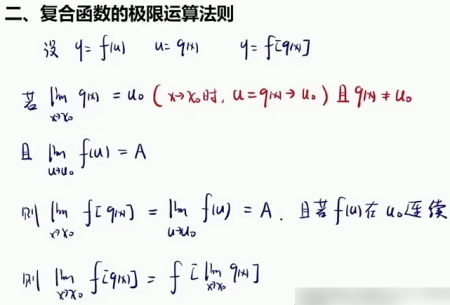 二、复合函数的极限运算法则
设 y=f(u) u=φ(x) y=f[φ(x)]
若 lim_{x→x₀} φ(x) = u₀ (x→x₀时, u=φ(x)→u₀) 且 φ(x)≠u₀
且 lim_{u→u₀} f(u) = A
则 lim_{x→x₀} f[φ(x)] = lim_{u→u₀} f(u) = A. 且若 f(u) 在 u₀ 连续
则 lim_{x→x₀} f[φ(x)] = f[lim_{x→x₀} φ(x)]